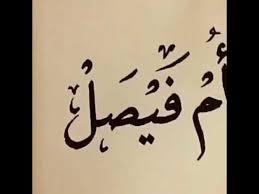 أُم فَيْصَلْ